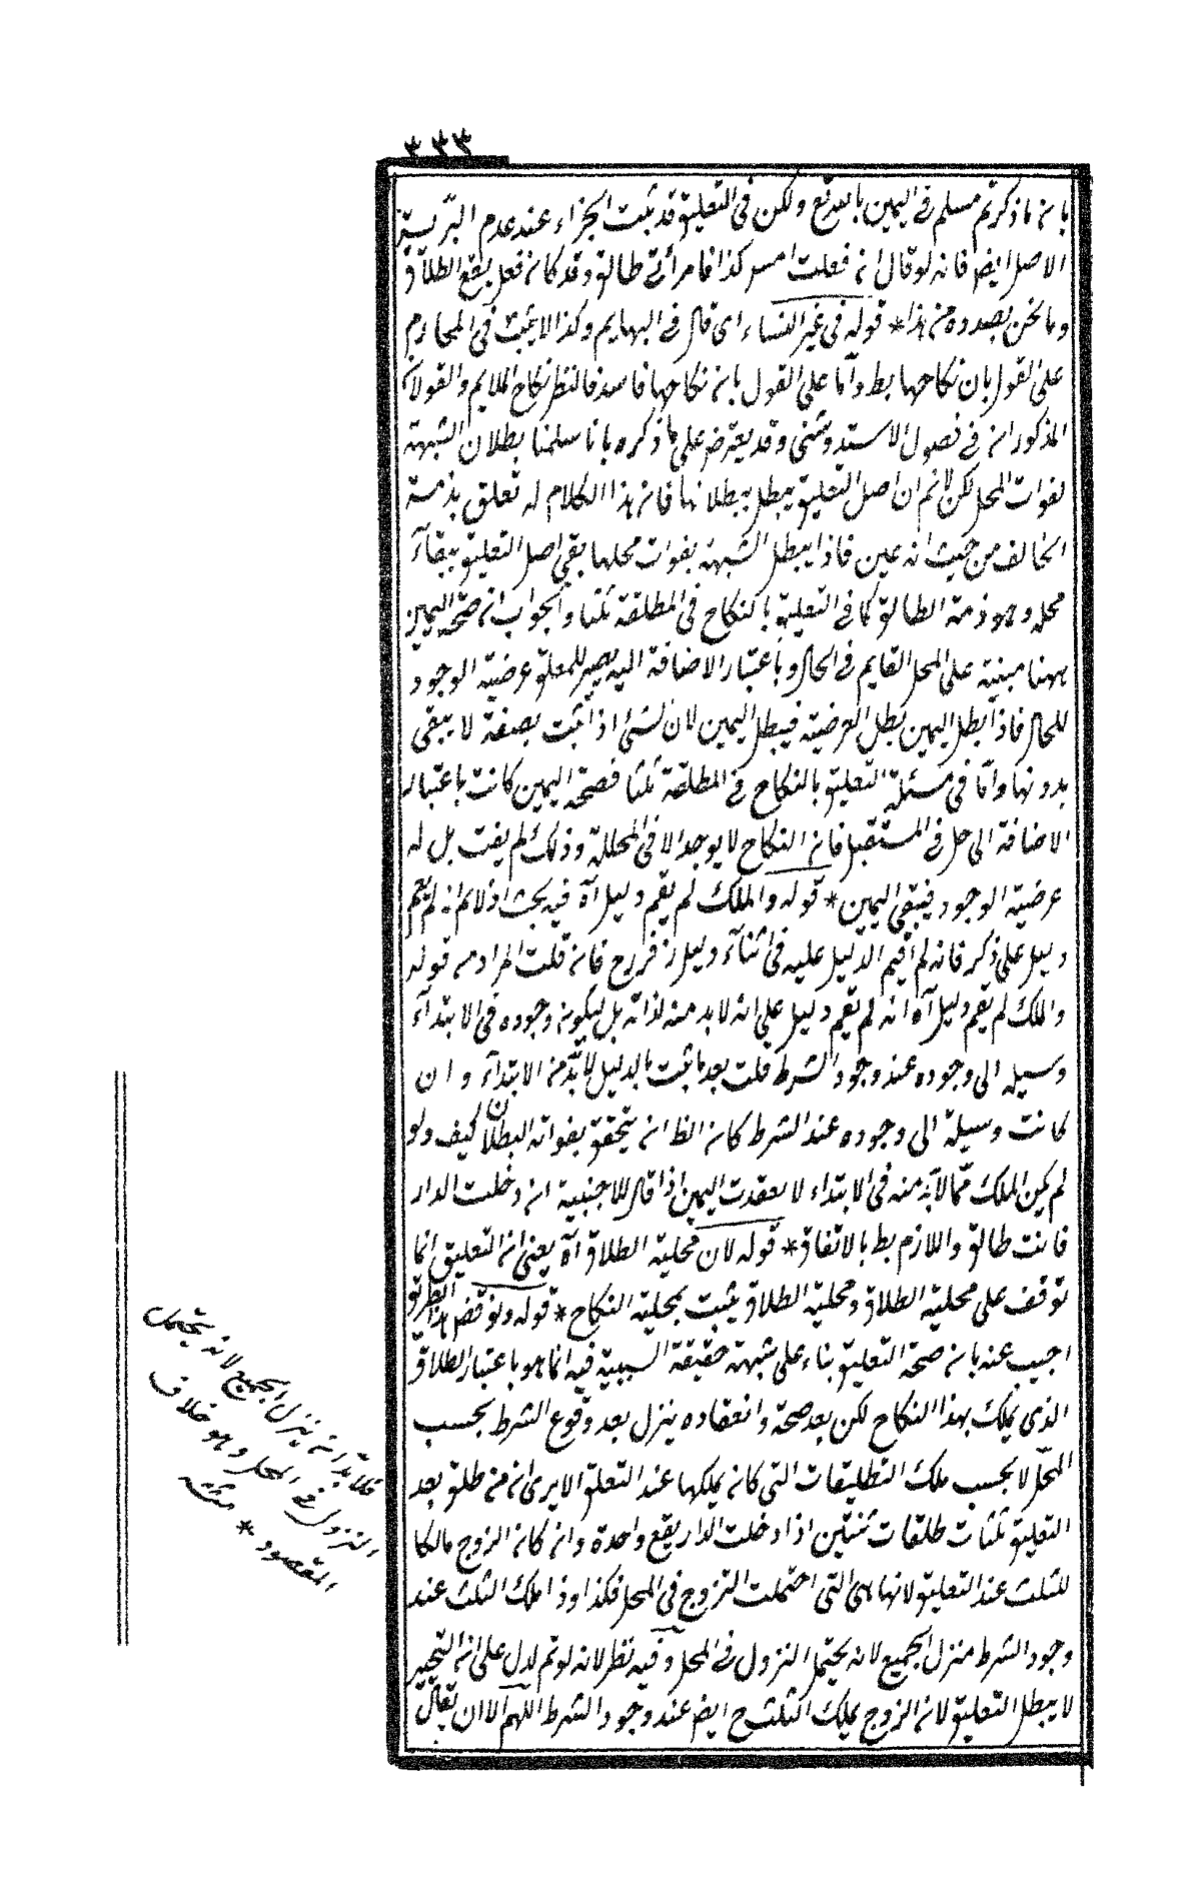 ٣٣٣
بان ما ذكرتم مسلم في اليمين بالله تع ولكن في التعليق قد ثبت الجزاء عند عدم البر
الاصل ايضا فانه لو قال ان فعلت امس كذا فامرأتي طالق وقد كان فعل يقع الطلاق
وما نحن بصدده من هذا * قوله في غير النساء اي قال في البهايم وكذا لا يثبت في المحارم
على القول بان نكاحها بط واما على القول بان نكاحها فاسد فالنظر نكاح الملايم والقولان
المذكوران في فصول الاستروشني وقد يعترض على ما ذكره بانا سلمنا بطلان الشبهة
لفوات المحل لكن لانم ان اصل التعليق يبطل ببطلانها فان هذا الكلام له تعلق بذمة
الحالف من حيث انه يمين فاذا يبطل الشبهة بفوات محلها بقي اصل التعليق ببقاء
محله وهو ذمة الطالق كما في التعليق بالنكاح في المطلقة ثلثا والجواب ان صحة اليمين
ههنا مبنية على المحل القايم في الحال وباعتبار الاضافة اليه يصير للمعلق عرضية الوجود
للحال فاذا بطل اليمين بطل العرضية فيبطل اليمين لان لشئ اذا ثبت بصفة لا يبقى
بدونها واما في مسئلة التعليق بالنكاح في المطلقة ثلثا فصحة اليمين كانت باعتبار
الاضافة الى حل في المستقبل فان النكاح لا يوجد الا في المحللة وذلك لم يفت بل له
عرضية الوجود فيبقى اليمين * قوله والملك لم يقم دليل آه فيه بحث اذ لانم انه لم يقم
دليل على ذكر فانه لم اقيم الدليل عليه في اثناء دليل زفر رح فان قلت المراد من قوله
والملك لم يقم دليل آه انه لم يقم دليل على انه لا بد منه لذاته بل ليكون وجوده في الابتداء
وسيله الى وجوده عند وجود الشرط قلت بعد ما ثبت بالدليل لابد من الابتداء وان
كانت وسيلة الى وجوده عند الشرط كان الظ ان يتحقق بفواته البطلان كيف ولو
لم يكن الملك مما لابد منه في الابتداء لا نعقدت اليمين اذا قال للاجنبية ان دخلت الدار
فانت طالق واللازم بط بالاتفاق * قوله لان محلية الطلاق آه يعني ان التعليق انما
توقف على محلية الطلاق ومحلية الطلاق يثبت بمحلية النكاح * قوله ونوقض هذا الطريق
اجيب عنه بان صحة التعليق بناء على شبهة حقيقة السببية فيه انما هو باعتبار الطلاق
الذى يملك بهذا النكاح لكن بعد صحة وانعقاده ينزل بعد وقوع الشرط بحسب
المحل لا بحسب ملك التطليقات التي كان يملكها عند التعلق الا يرى ان من طلق بعد
التعليق ثلثات طلقات ثنتين اذا دخلت الدار يقع واحدة وان كان الزوج مالكا
للثلث عند التعليق لانها هي التي احتملت النزوج في المحل فكذا اذا ملك الثلث عند
وجود الشرط منزل الجميع لانه يحتمل النزول في المحل وفيه نظر لانه لو تم لدل على ان التنجيز
لا يبطل التعليق لان الزوج يملك الثلث ح ايضا عند وجود الشرط اللهم الا ان يقال
فلابد ان ينزل الجميع لانه يحتمل
النزول في المحل وهو خلاف
المقصود * منه